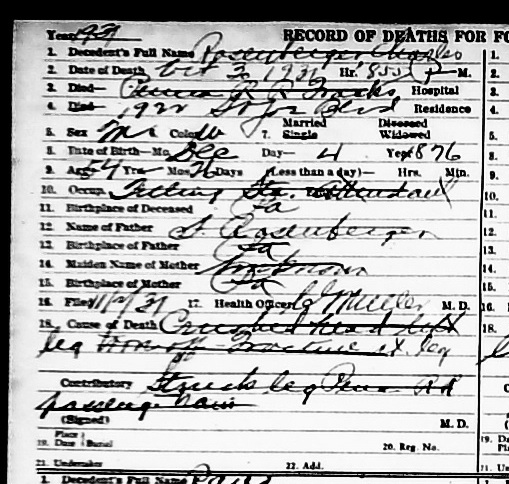 Year 1931 RECORD OF DEATHS FOR FO
1. Decedent's Full Name Rosenberger Charles
2. Date of Death Oct 3, 1931 Hr. 855 P M.
3. Died— Penna R R Tracks Hospital
4. Died— 1922 Blvd Residence
5. Sex M Color W 7. Married Single Diseased Widowed
8. Date of Birth—Mo. Dec Day— 4 Year 1876
9. Age 54 Yrs. Mos. Days (Less than a day)— Hrs. Min.
10. Occup. Filling Sta. Attendant
11. Birthplace of Deceased Pa
12. Name of Father S. Rosenberger
13. Birthplace of Father Pa
14. Maiden Name of Mother Unknown
15. Birthplace of Mother Pa
16. Filed 31 17. Health Officer Mueller M. D.
18. Cause of Death Crushed head left
leg Fracture rt. leg
Contributory Struck by Penna RR
passenger train
(Signed) M. D.
Place
19. Date Burial 20. Reg. No.
21. Undertaker 22. Add.
1. Decedent's Full Name
1.
2.
3.
4.
5.
8.
9.
10.
11.
12.
13.
14.
15.
16.
18.
19. Da
Pl
21. Un